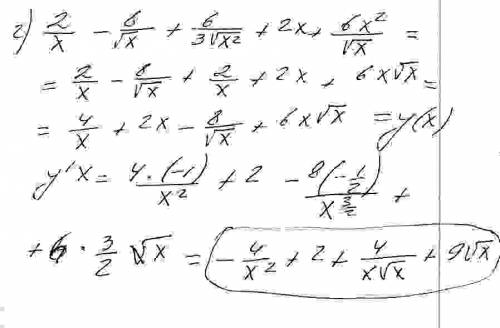 г) 2/x - 8/√x + 6/3√x² + 2x + 6x²/√x =
= 2/x - 8/√x + 2/x + 2x + 6x√x =
= 4/x + 2x - 8/√x + 6x√x = y(x)
y'x = 4·(-1)/x² + 2 - 8(-1/2)/x^(3/2) +
+ 6 · 3/2 √x = -4/x² + 2 + 4/(x√x) + 9√x